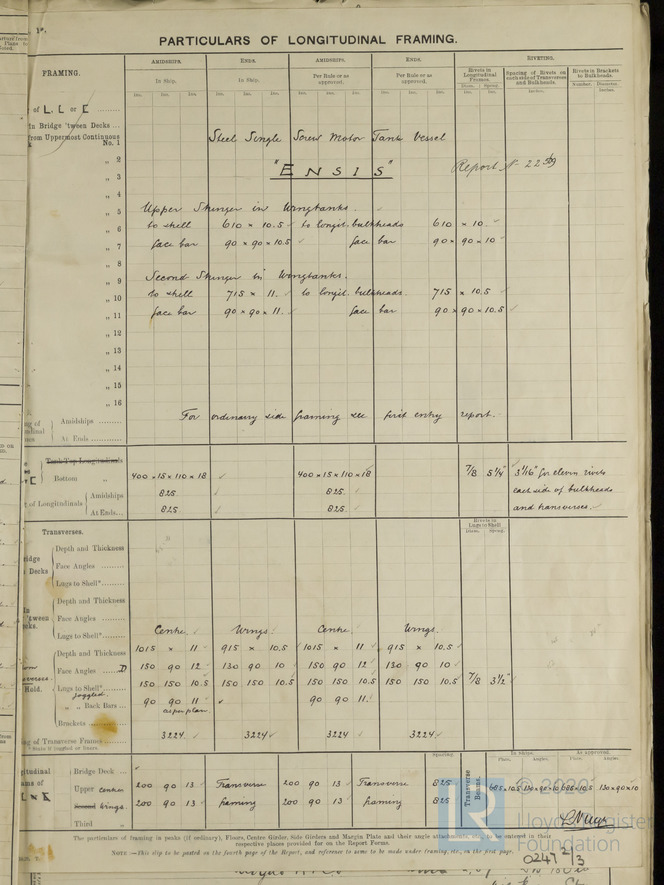 PARTICULARS OF LONGITUDINAL FRAMING.
FRAMING. AMIDSHIPS. ENDS. AMIDSHIPS. ENDS. RIVETING.
In Ship. In Ship. Per Rule or as approved. Per Rule or as approved. Rivets in Longitudinal Frames. Spacing of Rivets on each side of Transverses and Bulkheads. Rivets in Brackets to Bulkheads.
Ins. Ins. Ins. Ins. Ins. Ins. Ins. Ins. Ins. Ins. Ins. Ins. Diam. Spcng. Inches. Number. Diameter.
of L, [ or
In Bridge 'tween Decks
from Uppermost Continuous
No. 1 Steel Single Screw Motor Tank Vessel
„ 2
„ 3 "ENSIS" Report No 2259
„ 4
„ 5 Upper Stringer in Wingtanks.
„ 6 to shell 610 × 10.5 to longit. bulkheads 610 × 10.
„ 7 face bar 90 × 90 × 10.5 face bar 90 × 90 × 10
„ 8
„ 9 Second Stringer in Wingtanks.
„ 10 to shell 715 × 11. to longit. bulkheads. 715 × 10.5
„ 11 face bar 90 × 90 × 11. face bar 90 × 90 × 10.5
„ 12
„ 13
„ 14
„ 15
„ 16
Amidships For ordinary side framing see first entry report.
At Ends
Tank Top Longitudinals
Bottom „ 400 × 15 × 110 × 18 400 × 15 × 110 × 18 7/8 5 1/4" 3 1/16" for eleven rivets
of Longitudinals Amidships 825. 825. each side of bulkheads
At Ends... 825. 825. and transverses.
Transverses. Rivets in Lugs to Shell
Diam. Spcng.
Depth and Thickness
Face Angles
Lugs to Shell*
Depth and Thickness
Face Angles
Lugs to Shell* Centre Wings Centre Wings.
Depth and Thickness 1015 × 11 915 × 10.5 1015 × 11 915 × 10.5
Face Angles 150 90 12 130 90 10 150 90 12 130 90 10
Hold. Lugs to Shell* 150 150 10.5 150 150 10.5 150 150 10.5 150 150 10.5 7/8 3 1/2"
joggled
„ „ Back Bars 90 90 11 90 90 11.
as per plan
Brackets
of Transverse Frames 3224. 3224 3224 3224
* State if joggled or liners.
Spacing. In Ships. As approved.
Plate. Angles. Plate. Angles.
Bridge Deck
Upper centre 200 90 13 Transverse 200 90 13 Transverse 825 Transverse Beams.
Second wings. 200 90 13 framing 200 90 13 framing 825
Third „
The particulars of framing in peaks (if ordinary), Floors, Centre Girder, Side Girders and Margin Plate and their angle attachments, to be entered in their
respective places provided for on the Report Forms.
NOTE.—This slip to be pasted on the fourth page of the Report, and reference to same to be made under framing, etc., on the first page.
© 2020
Lloyd's Register
Foundation
0247 2/3